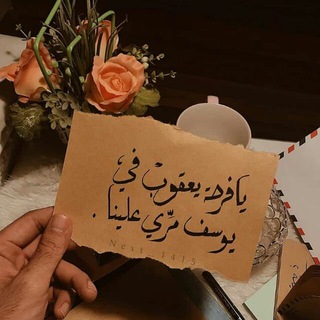 يا فرحة يعقوبْ في
يوسف مرِّي علينا .
Next_1415